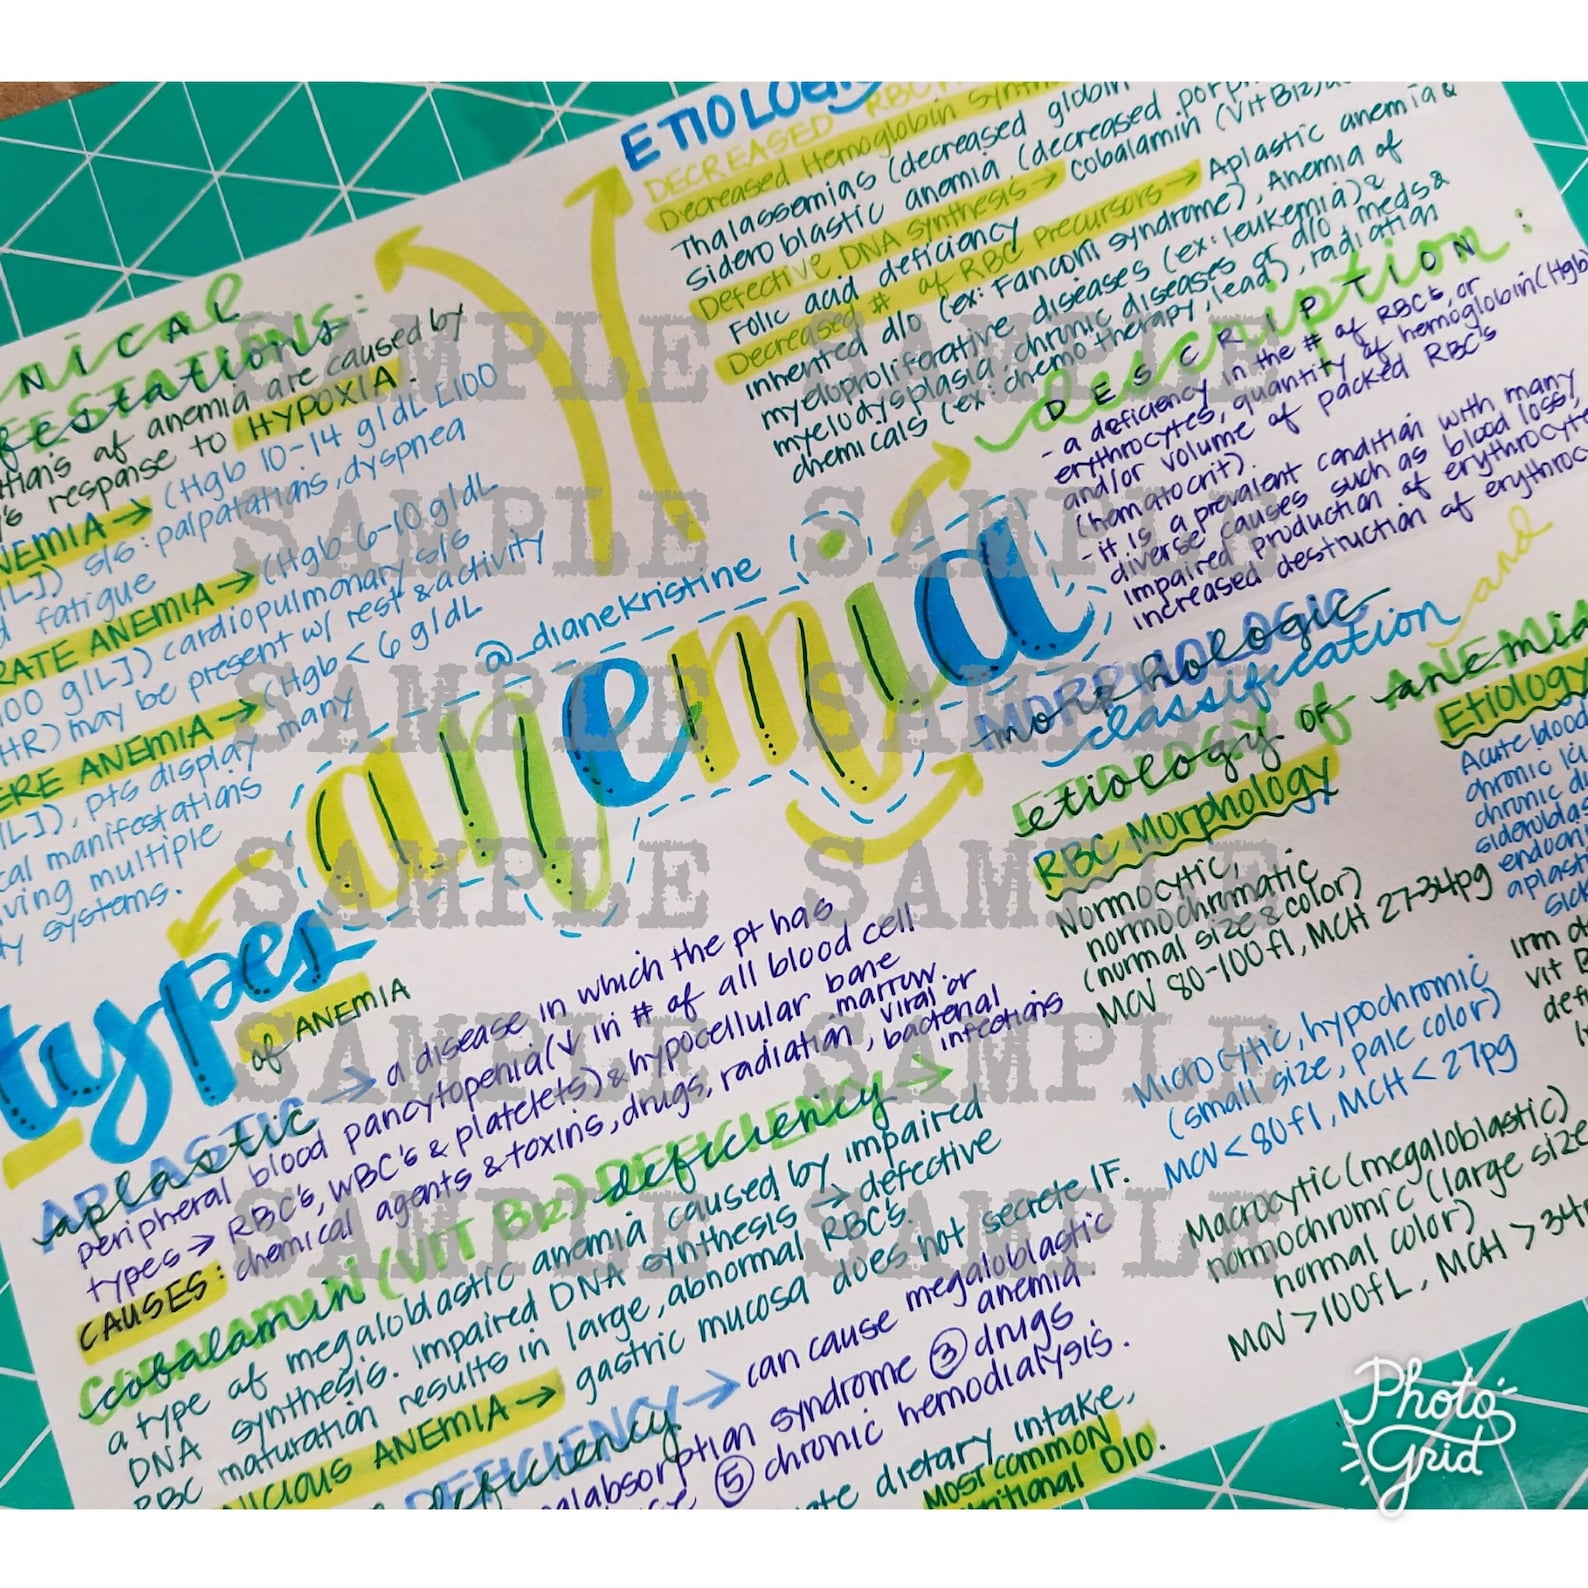 ETIOLOGY
DECREASED RBC
Decreased Hemoglobin synth
Thalassemias (decreased globin
Sideroblastic anemia (decreased porp
Defective DNA synthesis → Cobalamin (Vit B12)
Folic acid deficiency
Decreased # of RBC precursors → Aplastic anemia &
inherited d/o (ex: Fanconi syndrome), Anemia of
myeloproliferative diseases (ex: leukemia) &
myelodysplasia, chronic diseases or d/o meds &
chemicals (ex: chemotherapy, lead), radiation
description
DESCRIPTION:
- a deficiency in the # of RBC's, or
erythrocytes, quantity of hemoglobin (Hgb)
and/or volume of packed RBC's
(hematocrit).
- it is a prevalent condition with many
diverse causes such as blood loss,
impaired production of erythrocyte
increased destruction of erythroc
NICAL
festations:
of anemia are caused by
response to HYPOXIA.
NEMIA → (Hgb 10-14 g/dL [100
/L]) s/s: palpatations, dyspnea
fatigue
RATE ANEMIA → (Hgb 6-10 g/dL
100 g/L]) cardiopulmonary s/s
HR) may be present w/ rest & activity
ERE ANEMIA → (Hgb < 6 g/dL
/L]), pts display many
cal manifestations
ving multiple
systems.
@_dianekristine
anemia
MORPHOLOGIC
morphologic
classification and
etiology OF anemia
RBC Morphology
Normocytic,
normochromatic
(normal size & color)
MCV 80-100fl, MCH 27-34pg
Microcytic, hypochromic
(small size, pale color)
MCV < 80fl, MCH < 27pg
Macrocytic (megaloblastic)
normochromic (large size
normal color)
MCV > 100fL, MCH > 34
Etiology
Acute blood
chronic
chronic
sideroblas
aplasti
Sick
Iron
vit B
defi
types
of ANEMIA
APLASTIC
aplastic → a disease in which the pt has
peripheral blood pancytopenia (↓ in # of all blood cell
types → RBC's, WBC's & platelets) & hypocellular bone
marrow.
CAUSES: chemical agents & toxins, drugs, radiation, viral or
bacterial
infections
COBALAMIN (VIT B12) DEFICIENCY →
cobalamin deficiency
a type of megaloblastic anemia caused by impaired
DNA synthesis. Impaired DNA synthesis → defective
RBC maturation results in large, abnormal RBC's.
NICIOUS ANEMIA → gastric mucosa does not secrete IF.
DEFICIENCY → can cause megaloblastic
deficiency anemia.
alabsorption syndrome ③ drugs
⑤ chronic hemodialysis.
dietary intake,
MOST COMMON
tritional D/O.
SAMPLE SAMPLE
SAMPLE SAMPLE
SAMPLE SAMPLE
SAMPLE SAMPLE
SAMPLE SAMPLE
SAMPLE SAMPLE
Photo
Grid